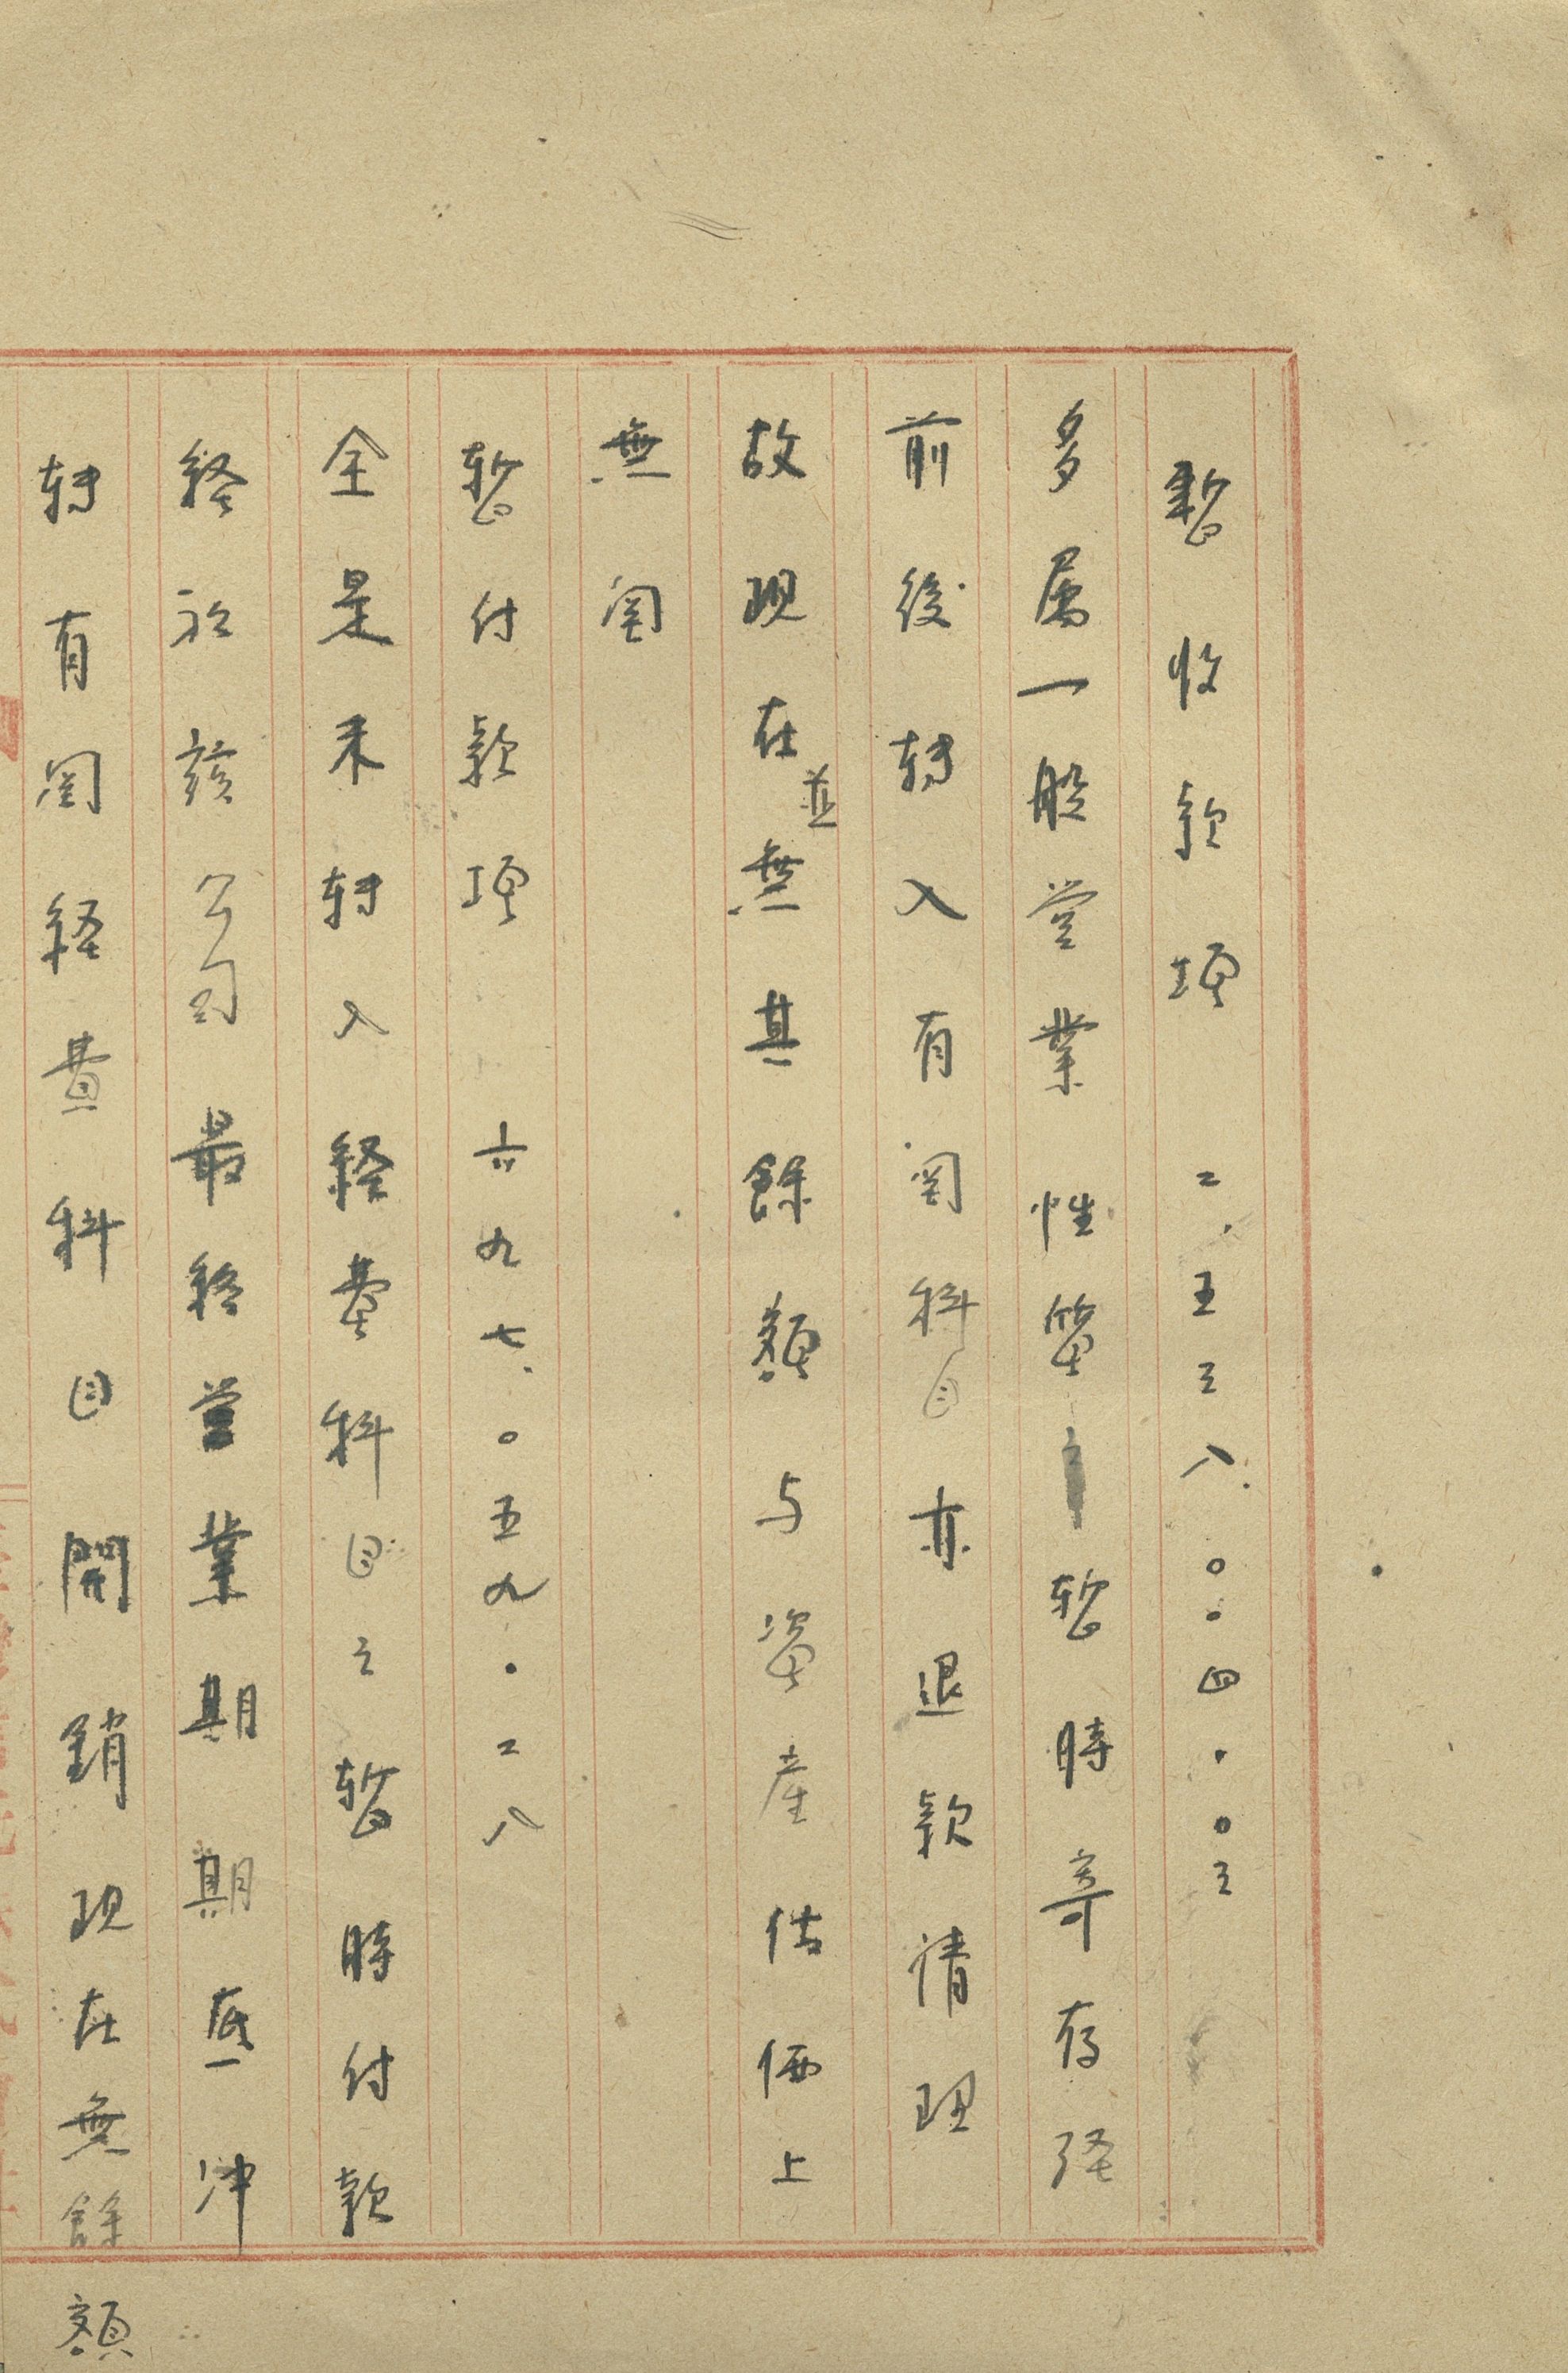 暫收款項　二.五三八.〇〇四.〇三
多屬一般営業性質暫時寄存経
前後轉入有関科目亦退款清理
故現在並無其餘額与資産估価上
無関
暫付款項　六九七.〇五九.二八
全是未轉入経費科目之暫時付款
経於該公司最終営業期期底冲
轉有関経費科目開銷現在無餘額